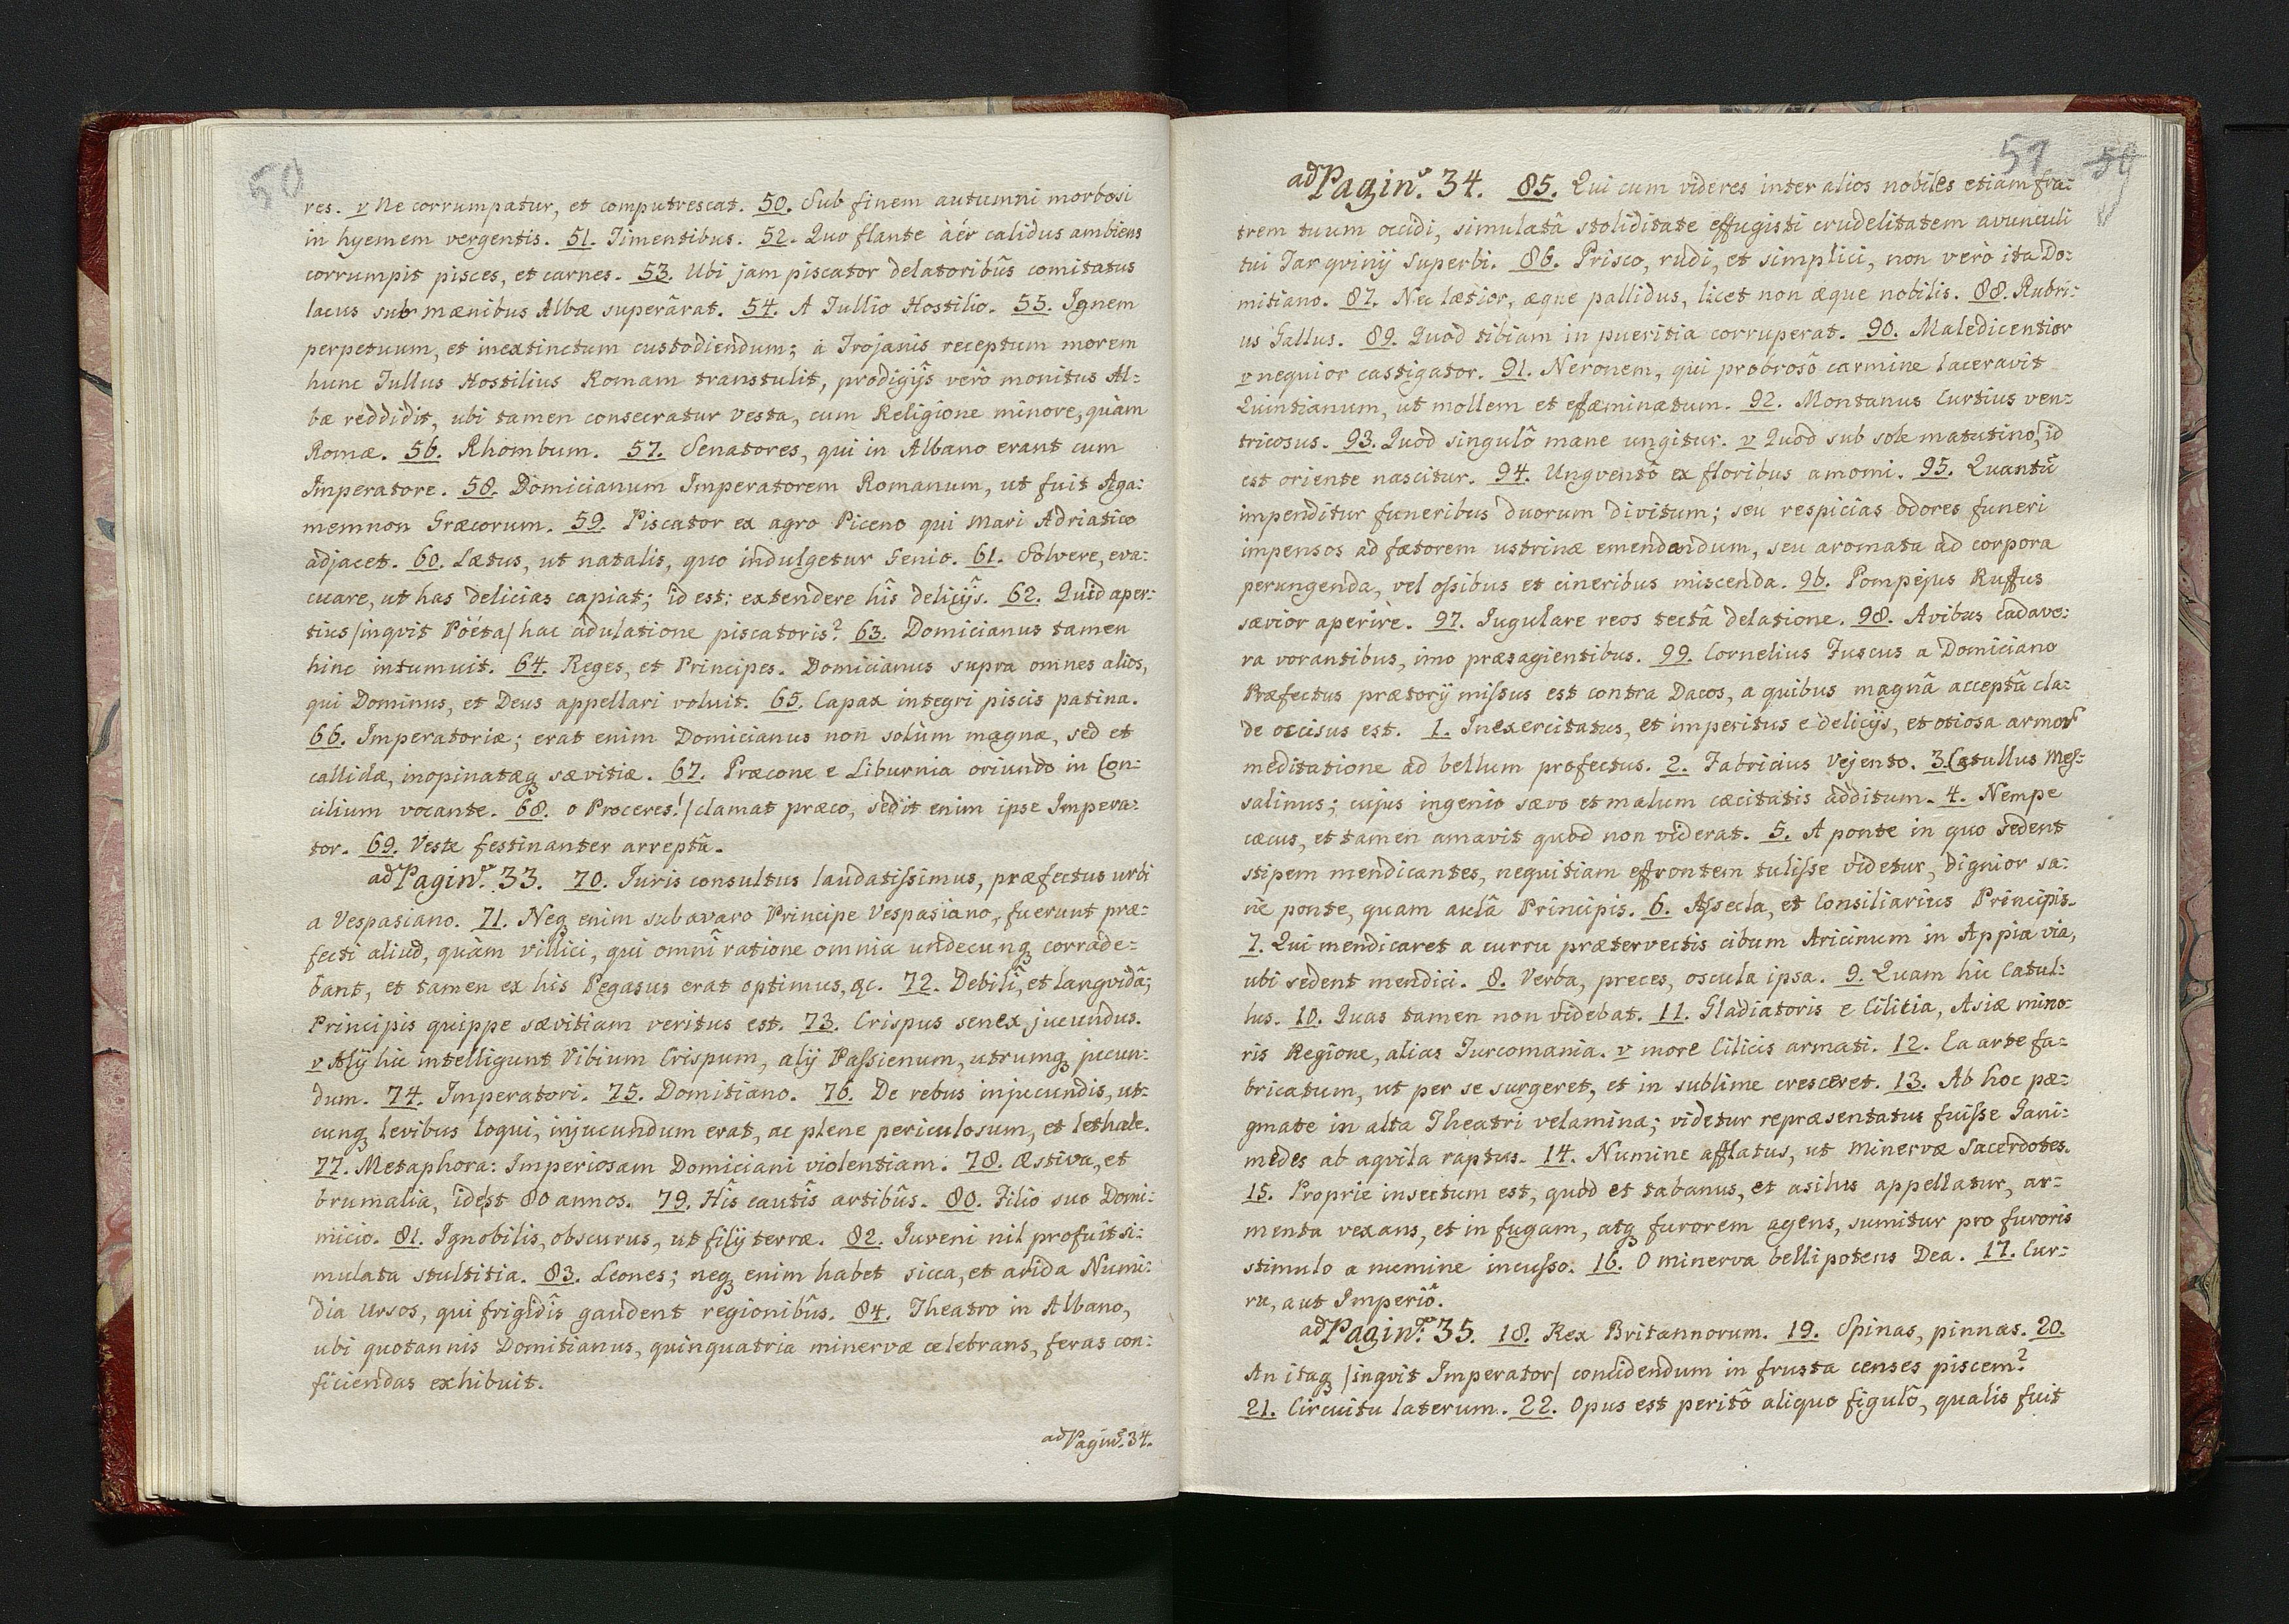 50
res. v Ne corrumpatur, et computrescat. 50. Sub finem autumni morbosi
in hyemem vergentis. 51. Timentibus. 52. Quo flante àér calidus ambiens
corrumpit pisces, et carnes. 53. Ubi jam piscator delatoribûs comitatus
lacus sub mænibus Albæ superârat. 54. A Tullio Hostilio. 55. Ignem
perpetuum, et inextinctum custodiendum; à Trojanis receptum morem
hunc Tullus Hostilius Romam transtulit, prodigijs verò monitus Al:
bæ reddidit, ubi tamen consecratur Vesta, cum Religione minore, quàm
Romæ. 56. Rhombum. 57. Senatores, qui in Albano erant cum
Imperatore. 58. Domicianum Imperatorem Romanum, ut fuit Aga:
memnon Græcorum. 59. Piscator ex agro Piceno qui Mari Adriatico
adjacet. 60. Lætus, ut natalis, quo indulgetur Genio. 61. Solvere, eva:
cuare, ut has delicias capiat; id est: extendere hîs delicijs. 62. Quid aper:
tius /inqvit Pöéta/ hac adulatione piscatoris? 63. Domicianus tamen
hinc intumuit. 64. Reges, et Principes. Domicianus supra omnes alios,
qui Dominus, et Deus appellari voluit. 65. Capax integri piscis patina.
66. Imperatoriæ; erat enim Domicianus non solùm magnæ, sed et
callidæ, inopinatæq sævitiæ. 67. Præcone e Liburnia oriundo in Con:
cilium vocante. 68. o Proceres! /clamat præco, sedit enim ipse Impera:
tor. 69. Veste festinanter arreptâ.
ad Pagin. 33. 70. Iuris consultus laudatissimus, præfectus urbi
a Vespasiano. 71. Neq enim sub avaro Principe Vespasiano, fuerunt præ:
fecti aliud, quàm villici, qui omnî ratione omnia undecunq corrade:
bant, et tamen ex his Pegasus erat optimus, &c. 72. Debilî, et langvidâ;
Principis quippe sævitiam veritus est. 73. Crispus senex, jucundus.
v Alij hic intelligunt Vibium Crispum, alij Passienum, utrumq jucun:
dum. 74. Imperatori. 75. Domitiano. 76. De rebus injucundis, ut:
cunq levibus loqui, injucundum erat, ac plene periculosum, et lethale.
77. Metaphora: Imperiosam Domiciani violentiam. 78. Æstiva, et
brumalia, idest 80 annos. 79. Hîs cautîs artibûs. 80. Filio suo Domi:
nicio. 81. Ignobilis, obscurus, ut filij terræ. 82. Iuveni nil profuit si:
mulata stultitia. 83. Leones; neq enim habet sicca, et arida Numi:
dia Ursos, qui frigidîs gaudent regionibûs. 84. Theatro in Albano,
ubi quotannis Domitianus, quinquatria minervæ celebrans, feras con:
ficiendas exhibuit.
ad Pagin. 34.
51 59
ad Pagin. 34. 85. Qui cum videres inter alios nobiles etiam fra:
trem tuum occidi, simulatâ stoliditate effugisti crudelitatem avunculi
tui Tarqvinij Superbi. 86. Prisco, rudi, et simplici, non verò ita Do:
mitiano. 87. Nec lætior, æque pallidus, licet non æque nobilis. 88. Rubri:
us Gallus. 89. Quòd tibiam in pueritia corruperat. 90. Maledicentior
v nequior castigator. 91. Neronem, qui probrosô carmine laceravit
Quintianum, ut mollem et effæminatum. 92. Montanus Curtius ven:
tricosus. 93. Quod singulô mane ungitur. v Quod sub sole matutino, id
est oriente nascitur. 94. Ungventô ex floribus amomi. 95. Quantũ
impenditur funeribus duorum divitum; seu respicias odores funeri
impensos ad fætorem ustrinæ emendandum, seu aromata ad corpora
perungenda, vel ossibus et cineribus miscenda. 96. Pompejus Ruffus
sævior aperire. 97. Iugulare reos tectâ delatione. 98. Avibus cadave:
ra vorantibus, imo præsagientibus. 99. Cornelius Fuscus a Domiciano
Præfectus prætorij missus est contra Dacos, a quibus magnâ acceptâ cla:
de occisus est. 1. Inexercitatus, et imperitus e delicijs, et otiosa armor
meditatione ad bellum profectus. 2. Fabricius Vejento. 3. Catullus Mes:
salinus; cujus ingenio sævo et malum cæcitatis additum. 4. Nempe
cæcus, et tamen amavit quod non viderat. 5. A ponte in quo sedent
stipem mendicantes, nequitiam effrontem tulisse videtur, dignior sa:
ne ponte, quam aulâ Principis. 6. Assecla, et Consiliarius Principis.
7. Qui mendicaret a curru prætervectis cibum Aricinum in Appia via,
ubi sedent mendici. 8. Verba, preces, oscula ipsa. 9. Quam hic Catul:
lus. 10. Quas tamen non videbat. 11. Gladiatoris e Cilicia, Asiæ mino:
ris Regione, alias Turcomania. v more Cilicis armati. 12. Ea arte fa:
bricatum, ut per se surgeret, et in sublime cresceret. 13. Ab hoc pæ:
gmate in alta Theatri velamina; videtur repræsentatus fuisse Gani:
medes ab aqvila raptus. 14. Numine afflatus, ut Minervæ Sacerdotes.
15. Proprie insectum est, quòd et tabanus, et asilus appellatur, ar:
menta vexans, et in fugam, atq furorem agens, sumitur pro furoris
stimulo a numine incusso. 16. O minerva bellipotens Dea. 17. Cur:
ru, aut Imperiô.
ad Pagin. 35. 18. Rex Britannorum. 19. Spinas, pinnas. 20.
An itaq /inqvit Imperator/ concidendum in frusta censes piscem?
21. Circuitu laterum. 22. Opus est peritô aliquo figulô, qualis fuit